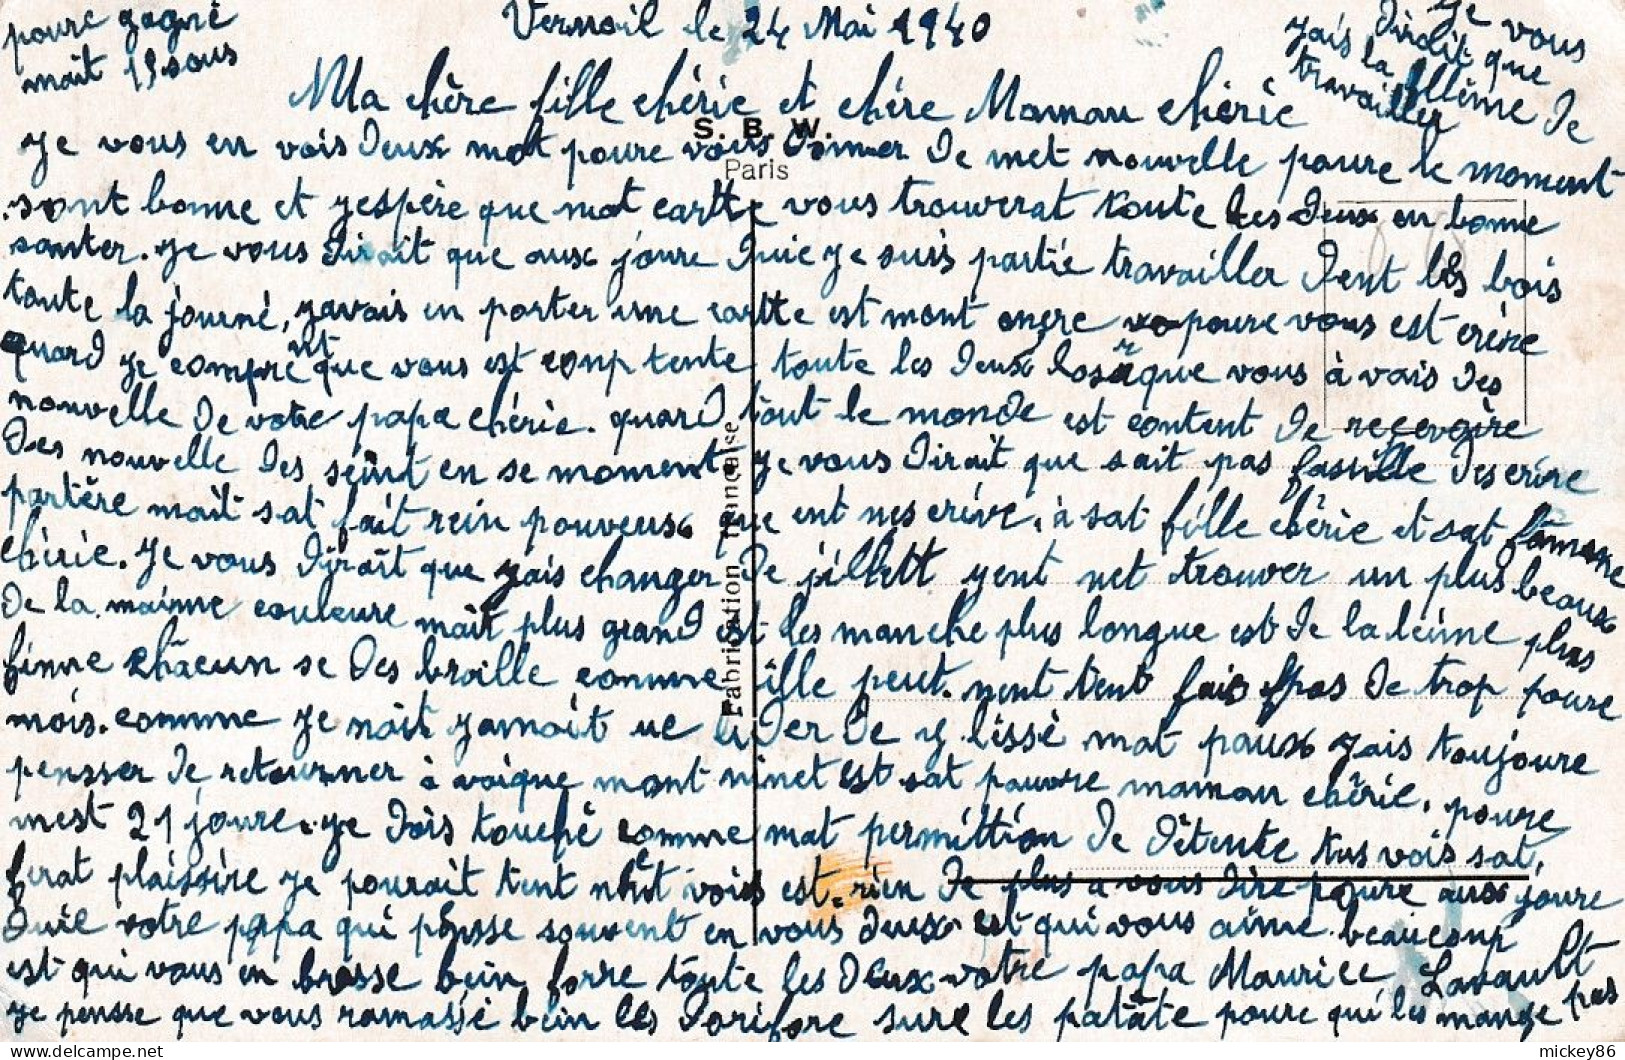 poure gagné
mait 19 sous
Vernoil le 24 Mai 1940
Je vous
dirait que
jais la flleme de
travailler
Ma chère fille chérie et chère Maman chérie
S. B. W.
Paris
Je vous en vois deux mot poure vous donner de met nouvelle poure le moment
sont bonne et jespère que mat cartte vous trouverat toute les deux en bonne
santer. Je vous dirait que aux joure duie je suis partie travailler dent les bois
toute la journé, javais en porter une cartte est mont encre poure vous est crire
quard je comprent que vous est conptente toute les deux losrque vous à vais des
nouvelle de votre papa chérie. quard tout le monde est content de recevoire
des nouvelle des seint en se moment Je vous dirait que sait pas fassille descrire
partère mait sat fait rein pouveux que ent nes crive, à sat fille chérie et sat famme
chérie. Je vous dirait que jais changer de jillett jent net trouver un plus beaux
de la mainme couleure mait plus grand est les manche plus longue est de la leine plus
finne chacun se des braille comme ille peut. nent tent fais pas de trop poure
mois. comme je nait jamait ue lider de y lissé mat paux jais toujoure
pensser de retourner à voique mont ninet est sat pauvre maman chérie, poure
mest 21 joure. je dois touché comme mat permittion de détente tus vois sat,
ferat plaissire je pourait tent nhet voies est. rien de plus a vous dire poure aux joure
duie votre papa qui pensse souvent en vous deux est qui vous aime beaucoup
est qui vous en brasse bein forre toute les deux votre papa Maurice Lavault
je pensse que vous ramassé bein les dorifore sure les patate poure qui les mange pas
Fabrication Française
mickey86